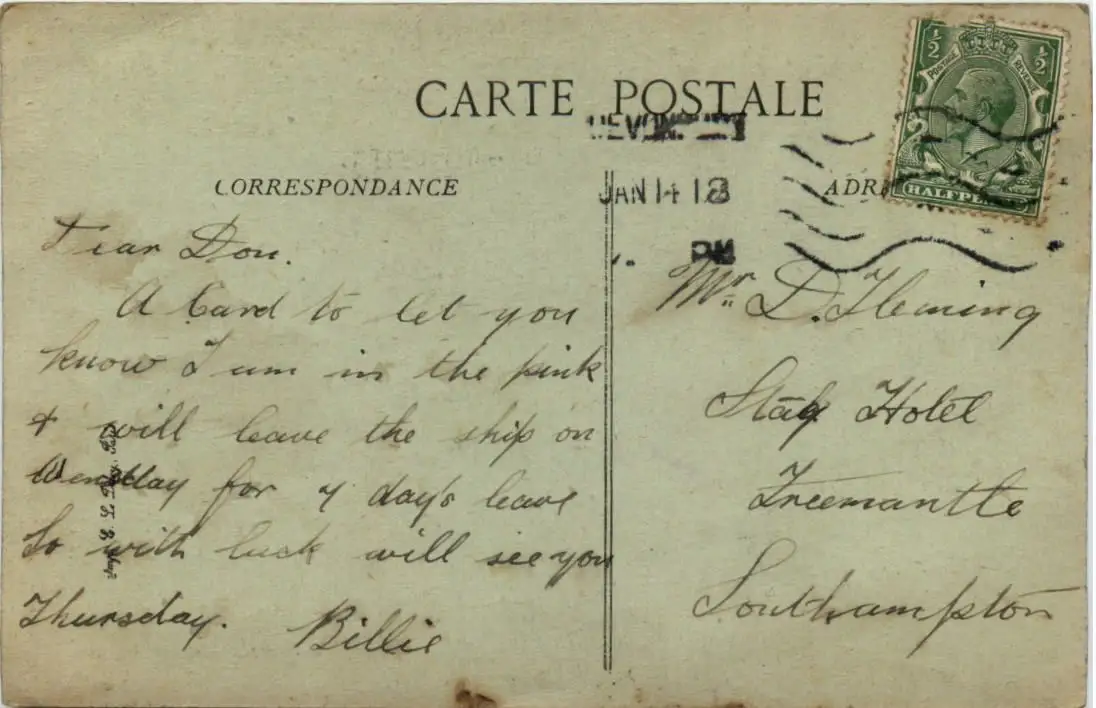 CARTE POSTALE
JAN 14 18
PM
½ ½
POSTAGE REVENUE
HALFPENNY
CORRESPONDANCE
ADR
Dear Don.
A Card to let you
know I am in the pink
& will leave the ship on
for 7 day's leave
So with luck will see you
Thursday. Billie
Mr D. Fleming
Stag Hotel
Freemantle
Southampton